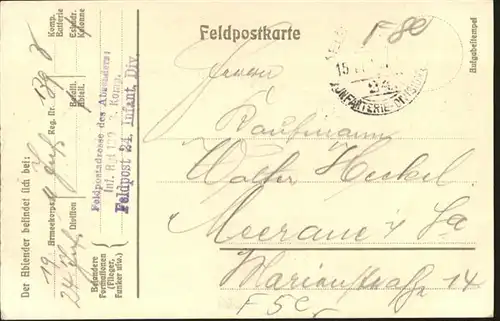 Feldpostkarte
F 80
Aufgabestempel
15
INFANTERIE-DIVISION
Herrn
Kaufmann
Walter Heckel
Meerane i/ Sa
Marienstraße 14
F 5 C
Der Absender befindet sich bei:
19 Armeekorps
24 Inf. Division
Reg. Nr. 139
Komp. Batterie
Eskadr. Kolonne
Bataill. Abteil.
Besondere Formationen (Flieger, Funker usw.)
Feldpostadresse des Absenders:
Komp.
Feldpost 24. Infant. Div.